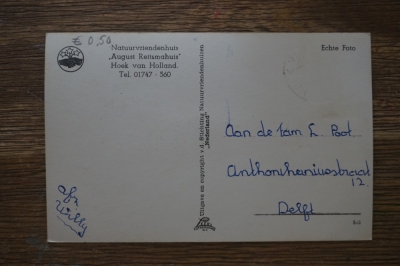 € 0,50
Natuurvriendenhuis
„August Reitsmahuis”
Hoek van Holland.
Tel. 01747 - 560
Echte Foto
Uitgave en copyright v.d. Stichting Natuurvriendenhuizen
„Nederland”
Aan de fam L. Poot.
12.
Delft
afz
Willy